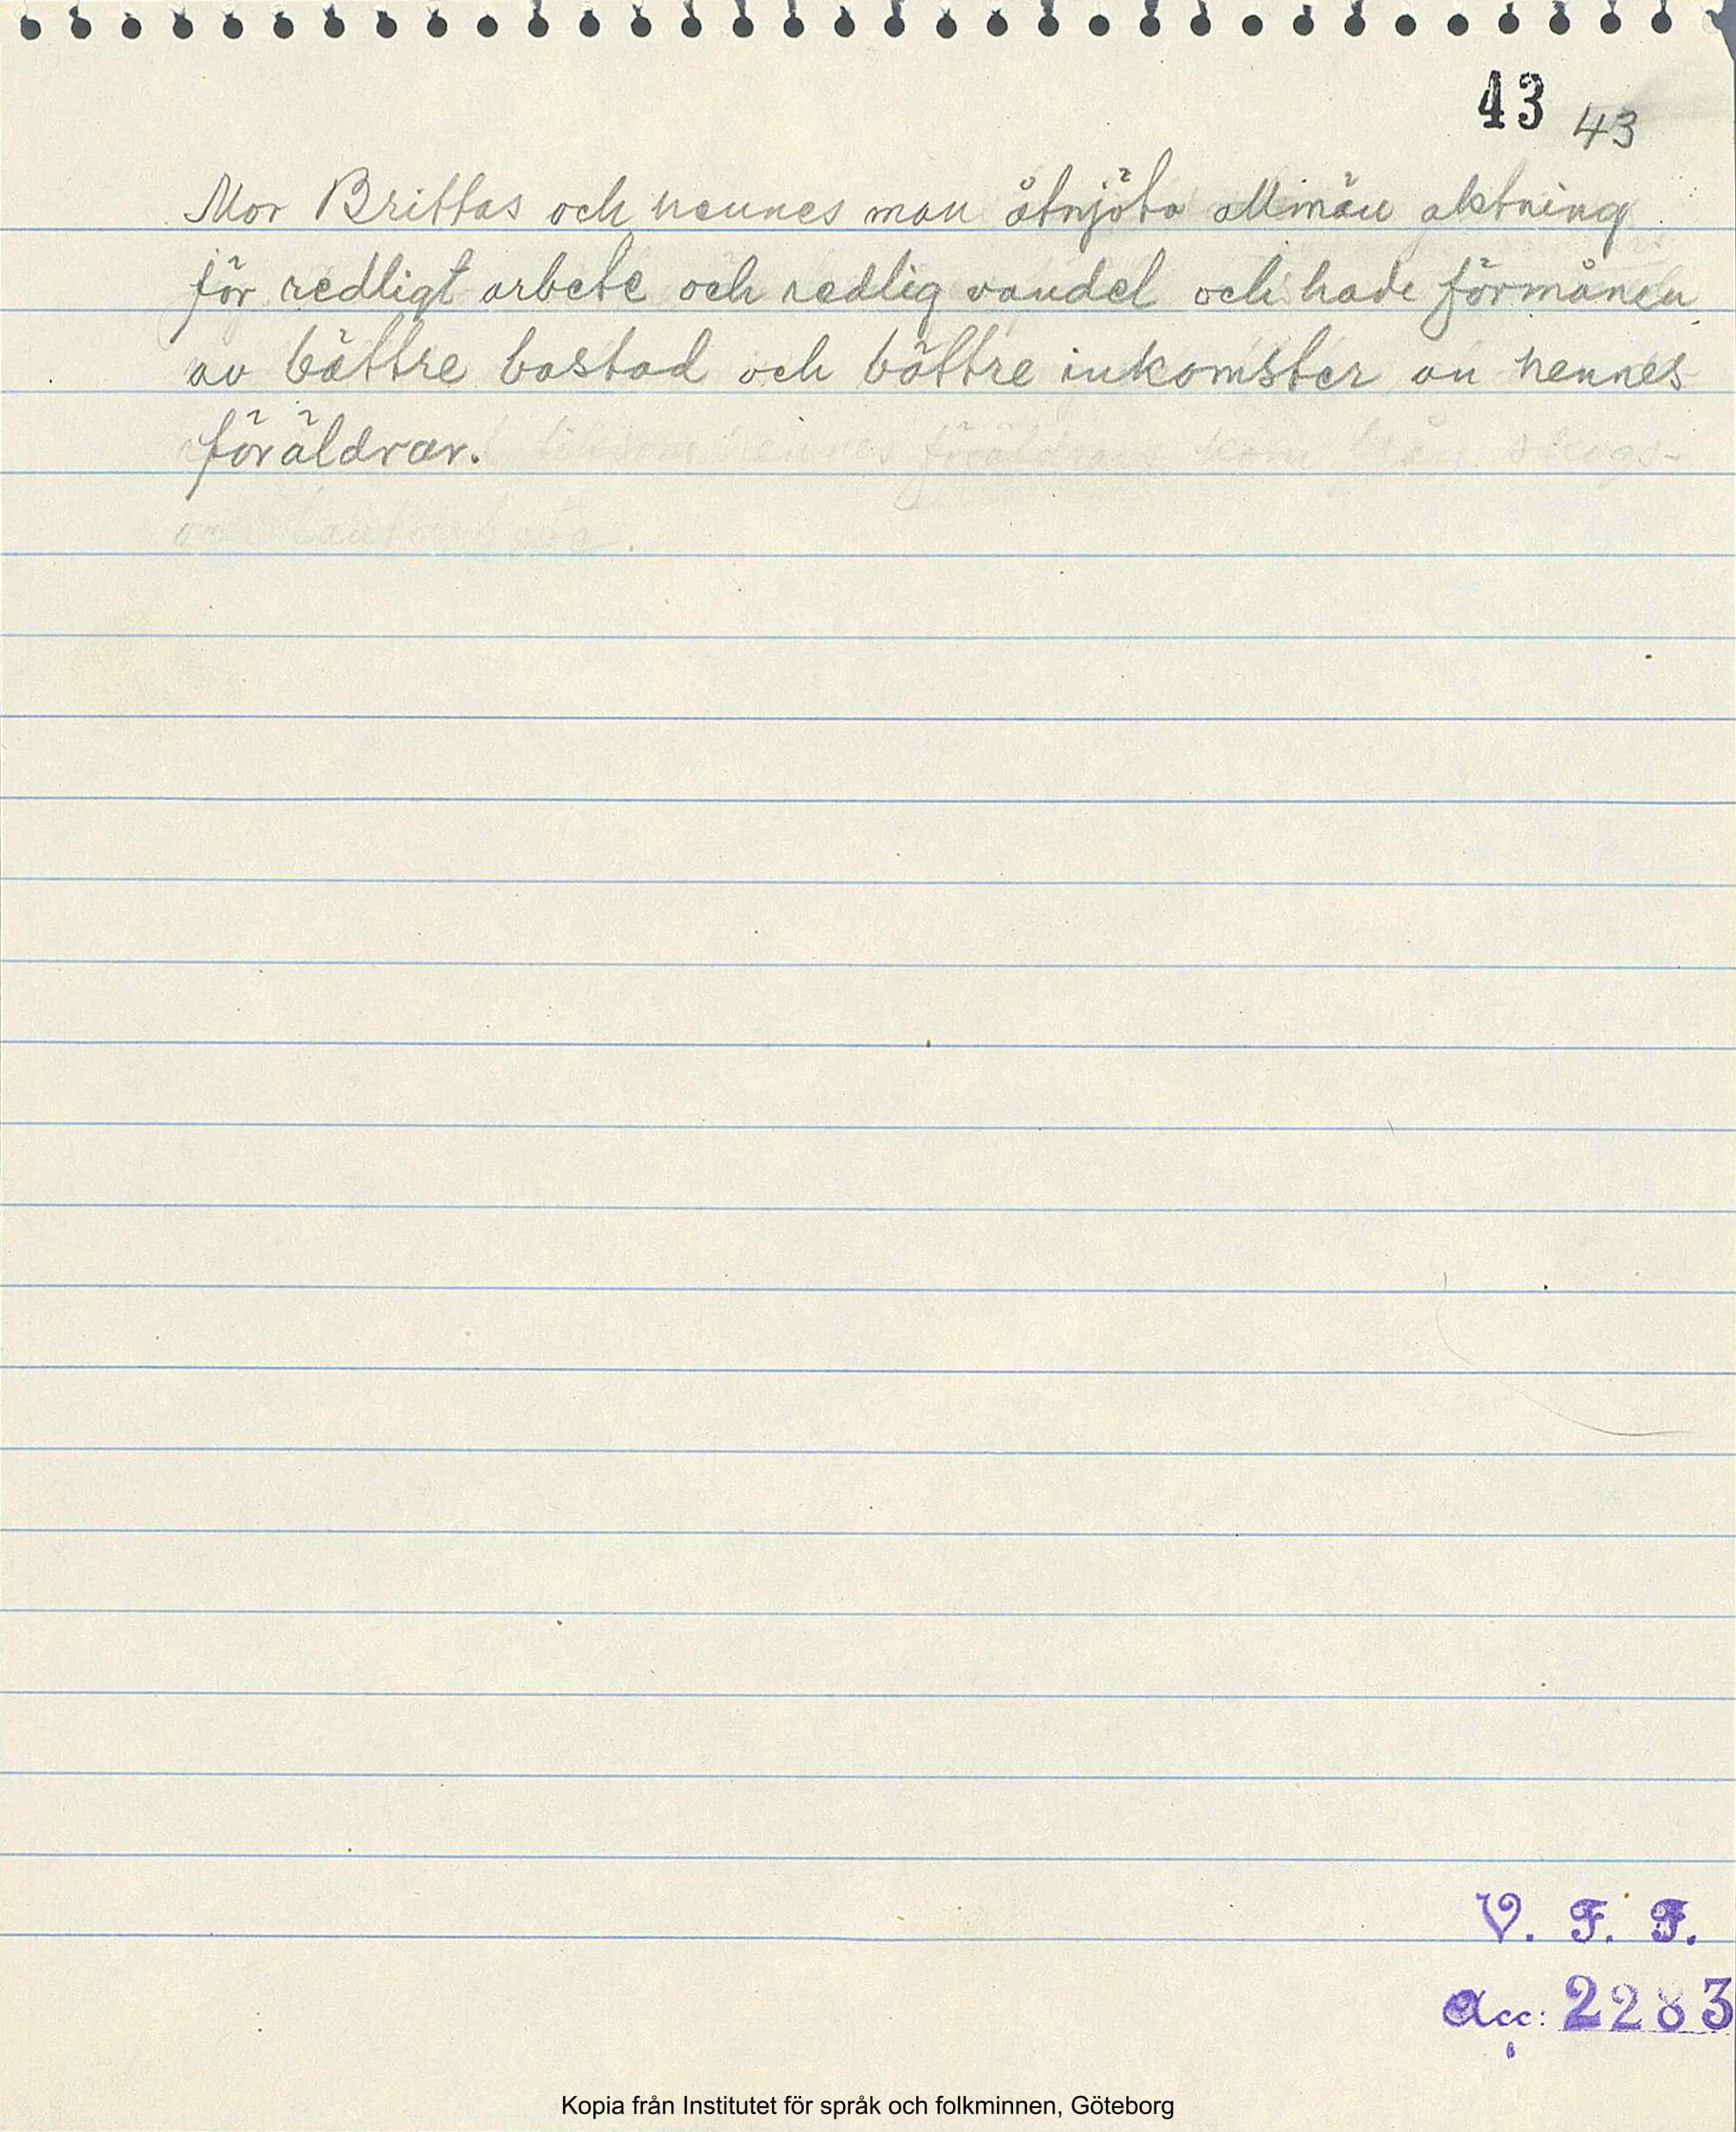 43 43
Mor Brittas och hennes man åtnjöto allmän aktning
för redligt arbete och redlig vandel och hade förmånen
av bättre bostad och bättre inkomster än hennes
föräldrar.
föräldrar kom från skogs-
V. F. F.
Acc: 2283
Kopia från Institutet för språk och folkminnen, Göteborg